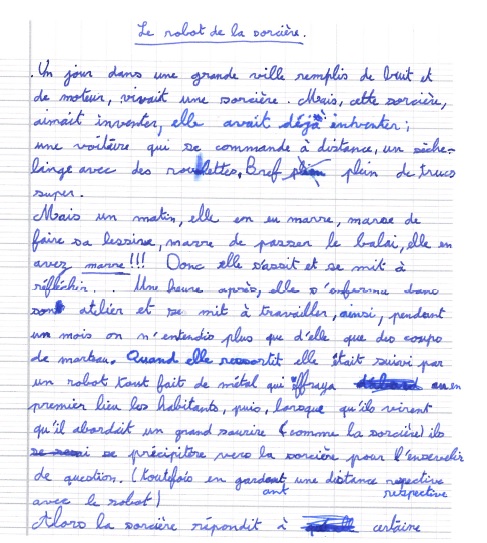 Le robot de la sorcière.
Un jour dans une grande ville remplis de bruit et
de moteur, vivait une sorcière. Mais, cette sorcière,
aimait inventer, elle avait déjà intventer ;
une voitûre qui se commande à distance, un sèche-
linge avec des roulettes, Bref plein de trucs
super.
Mais un matin, elle en eu marre, marre de
faire sa lessive, marre de passer le balai, elle en
avez marre!!! Donc elle s'assit et se mit à
réfléchir... Une heure après, elle s'enferma dans
son atelier et se mit à travailler, ainsi, pendant
un mois on n'entendis plus que d'elle que des coups
de marteau. Quand elle ressortit elle était suivi par
un robot tout fait de métal qui effraya au en
premier lieu les habitants, puis, lorsque qu'ils virent
qu'il abordait un grand sourire (comme la sorcière) ils
se précipitère vers la sorcière pour l'ensevelir
de question. (toutefois en gardant une distance repective
ant respective
avec le robot)
Alors la sorcière répondit à certaine